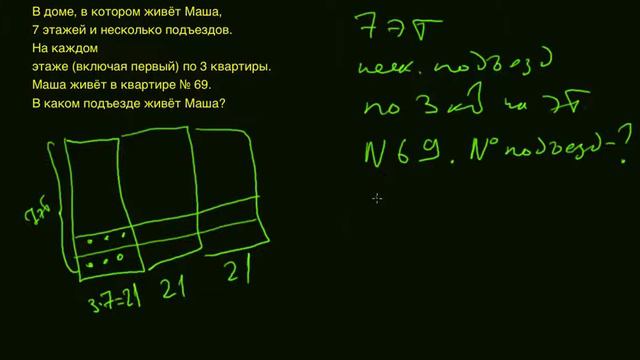 В доме, в котором живёт Маша,
7 этажей и несколько подъездов.
На каждом
этаже (включая первый) по 3 квартиры.
Маша живёт в квартире № 69.
В каком подъезде живёт Маша?
7 эт
неск. подъезд
по 3 кв на эт
N 69. № подъезд-?
7эт
3·7=21
21
21